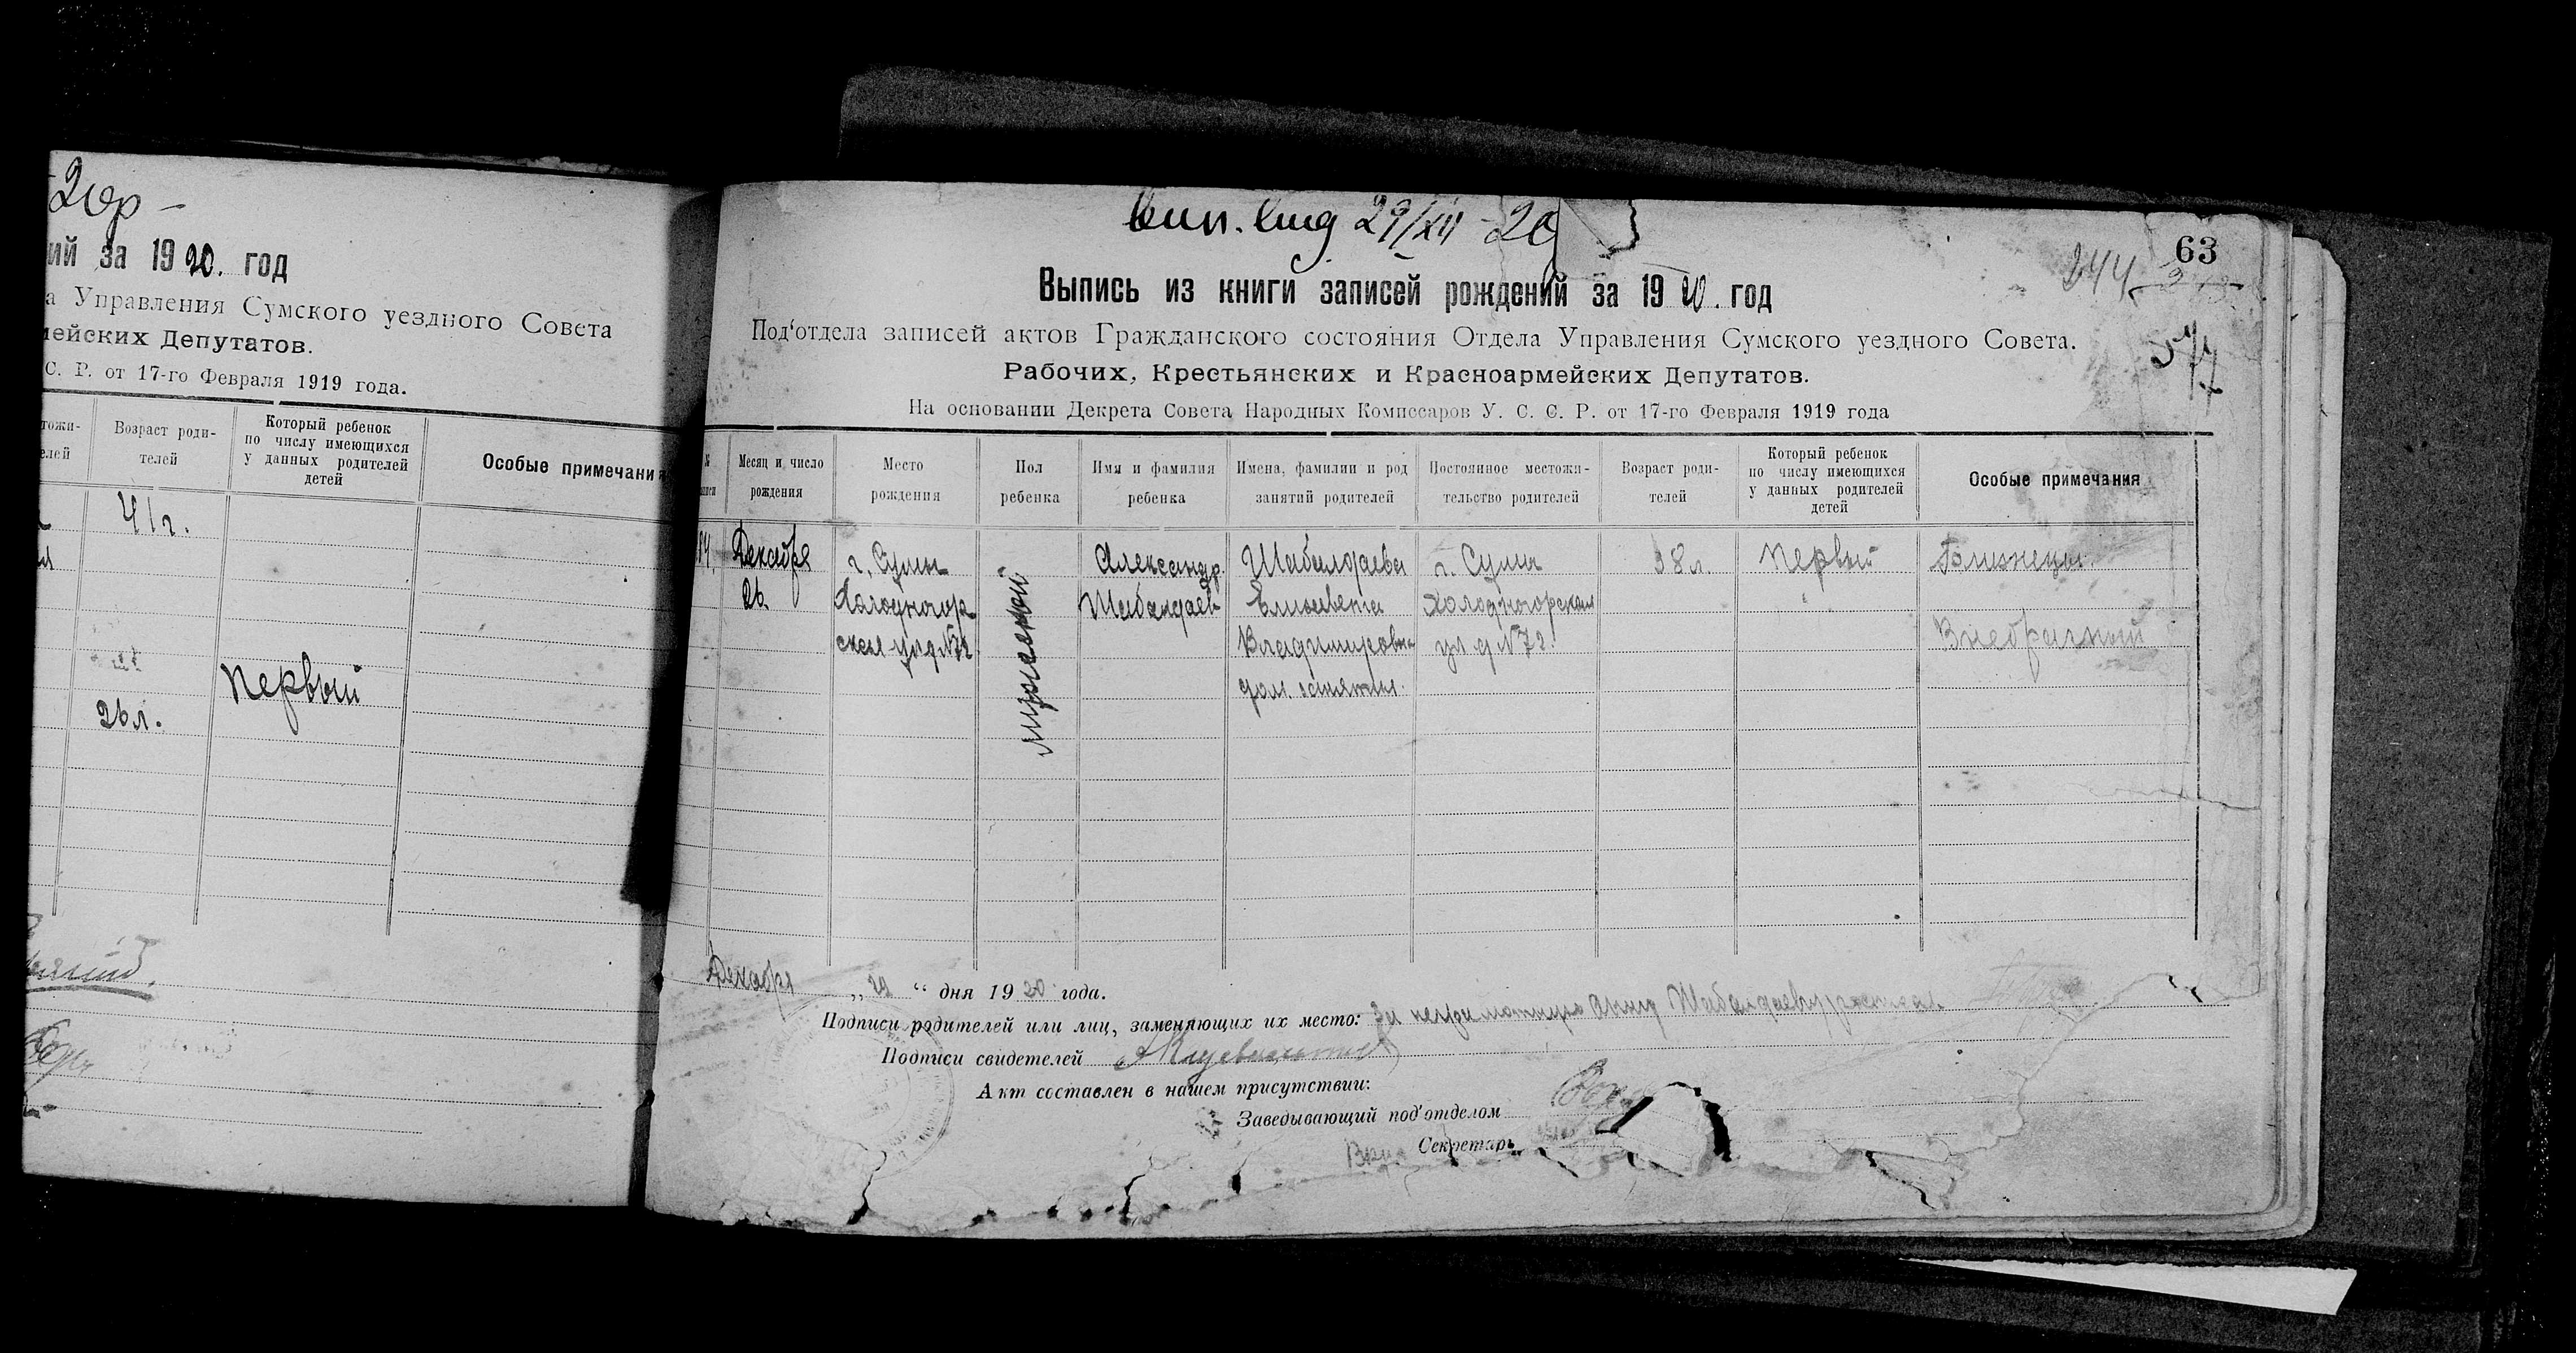 ий за 1920. год
а Управления Сумского уездного Совета
мейских Депутатов.
С. Р. от 17-го Февраля 1919 года.
тожи-
елей
Возраст роди-
телей
Который ребенок
по числу имеющихся
у данных родителей
детей
Особые примечания
41 г.
Первый
26 л.
29/XII - 20
63
244
Выпись из книги записей рождений за 1920. год
Под'отдела записей актов Гражданского состояния Отдела Управления Сумского уездного Совета.
Рабочих, Крестьянских и Красноармейских Депутатов.
На основании Декрета Совета Народных Комиссаров У. С. С. Р. от 17-го Февраля 1919 года
Месяц и число
рождения
Место
рождения
Пол
ребенка
Имя и фамилия
ребенка
Имена, фамилии и род
занятий родителей
Постоянное местожи-
тельство родителей
Возраст роди-
телей
Который ребенок
по числу имеющихся
у данных родителей
детей
Особые примечания
Декабря
26.
г. Сумы
Холодногор
ская ул д № 72
мужской
Александр
Шабалдаев
Шабалдаева
Елизавета
Владимировна
дом. занятия.
г. Сумы
Холодногорская
ул д № 72.
38 л.
Первый
Близнецы.
Внебрачный
Декабря „29“ дня 1920 года.
Подписи родителей или лиц, заменяющих их место: За неграмотную Анну Шабалдаеву
Подписи свидетелей
Акт составлен в нашем присутствии:
Заведывающий под'отделом
Секретарь